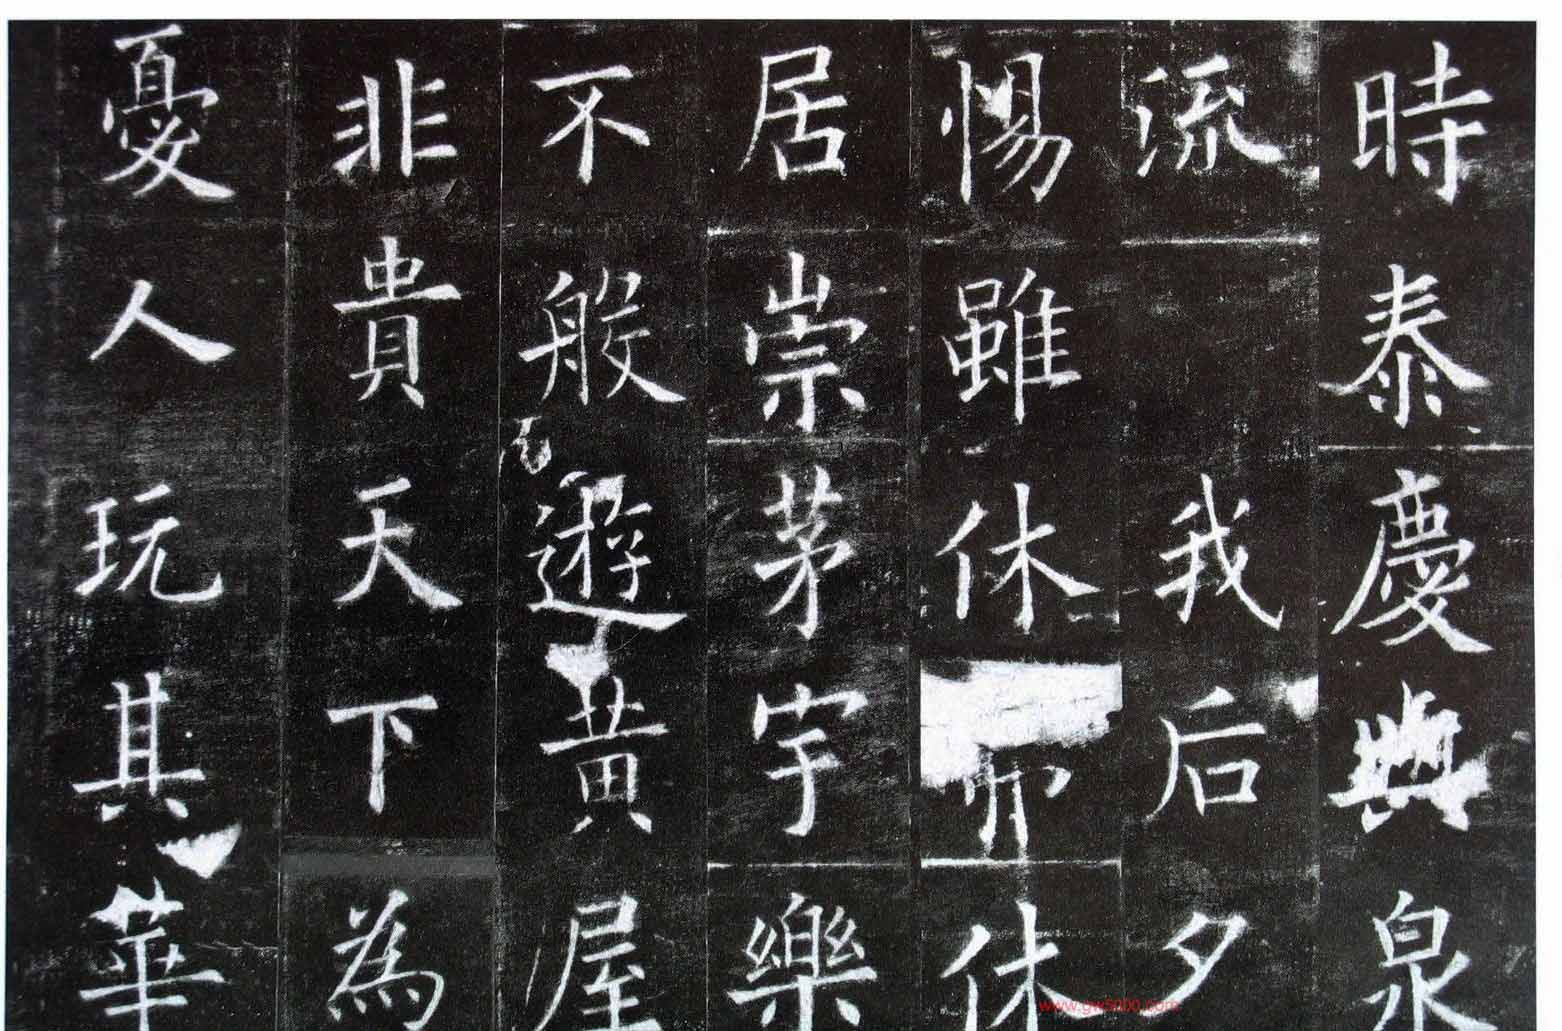 時泰慶與泉
流我后夕
惕雖休休
居崇茅宇樂
不般遊黃屋
非貴天下為
憂人玩其華
www.gw5000.com